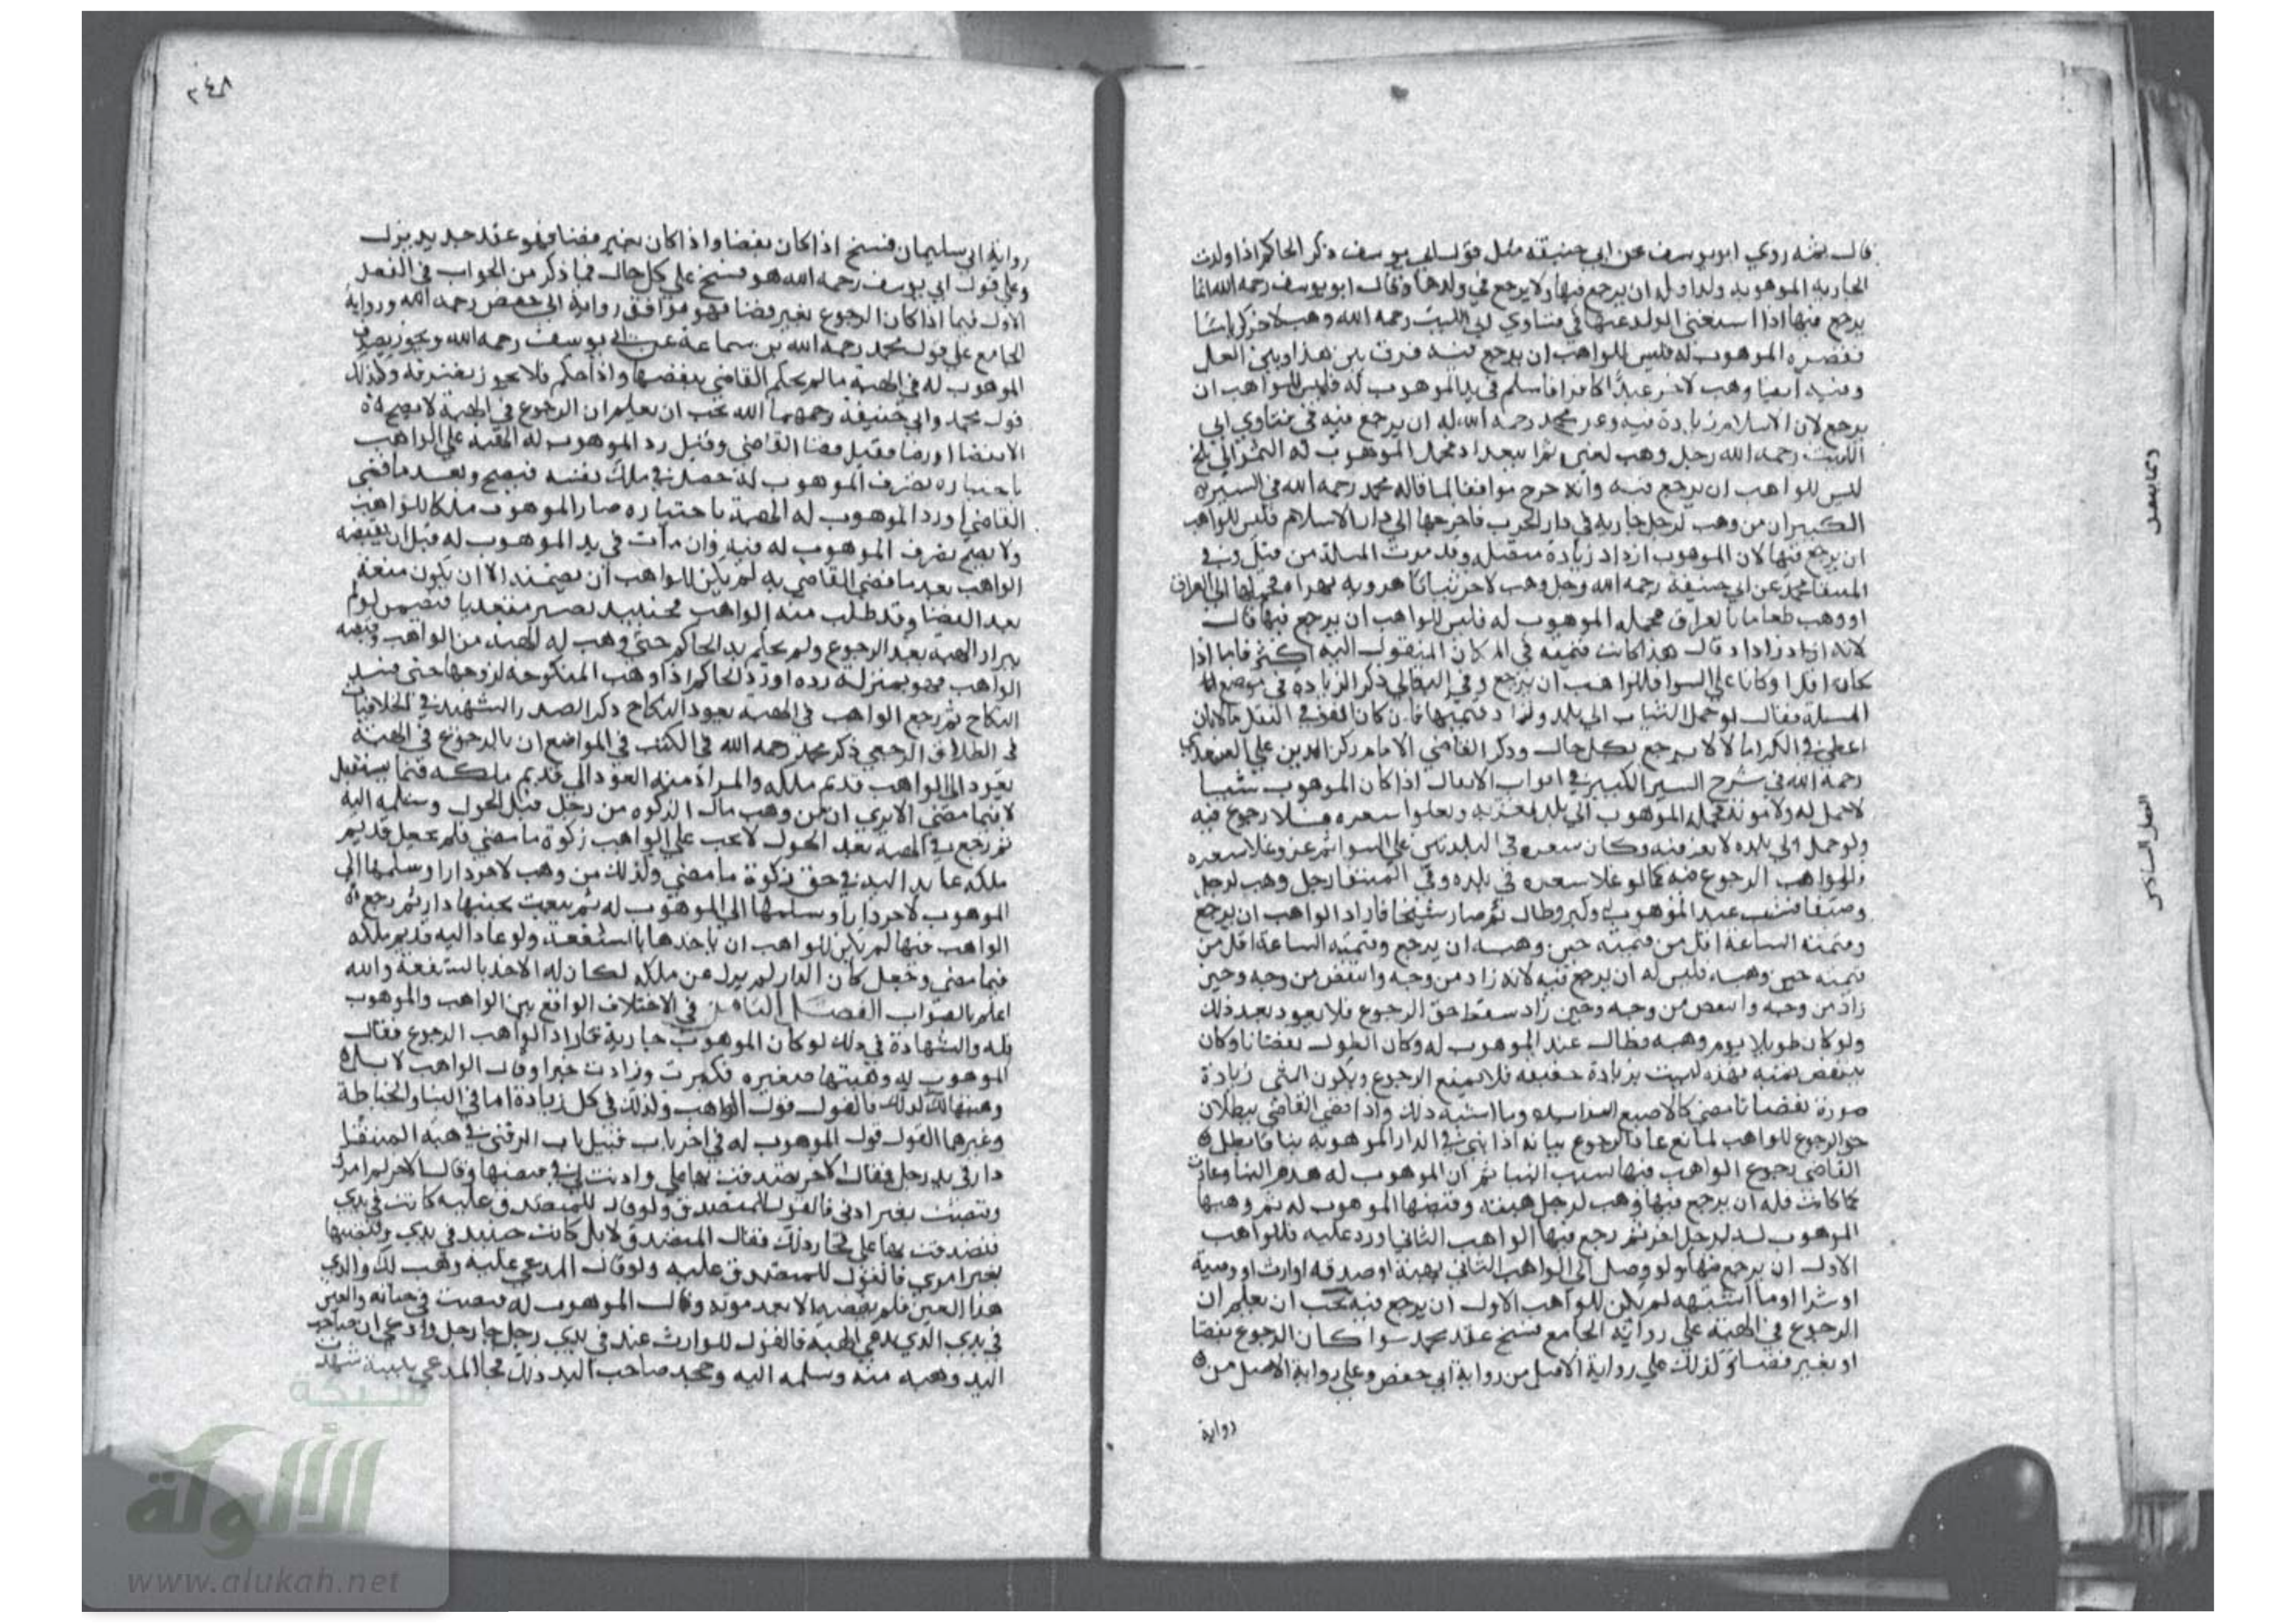 قال ثمة روي ابو يوسف عن ابي حنيفة مثل قول ابي يوسف ذكر الحاكم اذا ولدت
الجارية الموهوبة ولدا وله ان يرجع فيها ولا يرجع في ولدها وقال ابو يوسف رحمه الله انما
يرجع فيها اذا استغنى الولد عنها في فتاوي ابي الليث رحمه الله وهب لاخر كرباسا
فقصره الموهوب له فليس للواهب ان يرجع فيه فرق بين هذا وبين الغسل
وفيه ايضا وهب لاخر عبدا كافرا فاسلم في يد الموهوب له فليس للواهب ان
يرجع لان الاسلام زيادة فيه وعن محمد رحمه الله له ان يرجع فيه في فتاوي ابي
الليث رحمه الله رجل وهب تمرا ببغداد فحمل الموهوب له التمر الي بلخ
ليس للواهب ان يرجع فيه وانه خرج موافقا لما قاله محمد رحمه الله في السير
الكبير ان من وهب لرجل جارية في دار الحرب فاخرجها الي دار الاسلام فليس للواهب
ان يرجع فيها لان الموهوب ازداد زيادة متصلة وقد مرت المسلة من قبل وفي
المنتقا محمد عن ابي حنيفة رحمه الله رجل وهب لاخر ثيابا هروية بهرا فحملها الي العراق
او وهب طعاما بالعراق فحمله الموهوب له فليس للواهب ان يرجع فيها قال
لانه ازداد وقال هذا كانت قيمته في المكان المنقول اليه اكثر فاما اذا
كان اقل او كانا علي السوا فللواهب ان يرجع وفي البقالي ذكر الزيادة في موضع
المسلة فقال لو حمل الثياب الي بلد وزاد قيمتها فان كان انفق في النقل مالا فان
اعطي في الكرا مالا لا يرجع بكل حال وذكر القاضي الامام ركن الدين علي السغدي
رحمه الله في شرح السير الكبير في ابواب الانفال اذا كان الموهوب شيئا
لا حمل له ولا مونة فحمله الموهوب الي بلد يعز فيه ويعلوا سعره فلا رجوع فيه
ولو حمل الي بلدة لا يعز فيه وكان سعره في البلدتين علي السوا ثم عز وغلا سعره
فللواهب الرجوع فيه كما لو غلا سعره في بلده وفي المنتقا رجل وهب لرجل
وصيفا فشب عند الموهوب له وكبر وطال ثم صار شيخا فاراد الواهب ان يرجع
وقيمته الساعة اقل من قيمته حين وهبه ان يرجع وقيمته الساعة اقل من
قيمته حين وهبه فليس له ان يرجع فيه لانه زاد من وجه وانتقص من وجه وحين
زاد من وجه وانتقص من وجه وحين زاد سقط حق الرجوع فلا يعود بعد ذلك
ولو كان طويلا يوم وهبه فطال عند الموهوب له وكان الطول نقصانا وكان
ينقص قيمته فهذه ليست بزيادة حقيقة فلا يمنع الرجوع ويكون الشي زيادة
صورة نقصانا معني كالاصبع الزايدة وما اشبه ذلك واذا قضي القاضي ببطلان
حق الرجوع للواهب لمانع عاد الرجوع بيانه اذا بني في الدار الموهوبة بنا فابطل
القاضي رجوع الواهب فيها بسبب البنا ثم ان الموهوب له هدم البنا وعادت
كما كانت فله ان يرجع فيها وهب لرجل هبة وقبضها الموهوب له ثم وهبها
الموهوب له لرجل اخر ثم رجع فيها الواهب الثاني او رد عليه فللواهب
الاول ان يرجع فيها ولو وصل الي الواهب الثاني بهبة او صدقة او ارث او وصية
او شرا او ما اشبهه لم يكن للواهب الاول ان يرجع فيه يجب ان يعلم ان
الرجوع في الهبة علي رواية الجامع فسخ عند محمد سوا كان الرجوع بقضا
او بغير قضا وكذلك علي رواية الاصل من رواية ابي حفص وعلي رواية الاصل من
رواية
٢٤٨
رواية ابي سليمان فسخ اذا كان بقضا واذا كان بغير قضا فهو عقد جديد
وعلي قول ابي يوسف رحمه الله هو فسخ علي كل حال فما ذكر من الجواب في الفصل
الاول فيما اذا كان الرجوع بغير قضا فهو موافق رواية ابي حفص رحمه الله ورواية
الجامع علي قول محمد رحمه الله بن سماعة عن ابي يوسف رحمه الله ويجوز تصرف
الموهوب له في الهبة ما لم يحكم القاضي بنقضها واذا حكم فلا يجوز تصرفه وكذلك
قول محمد وابي حنيفة رحمهما الله يجب ان يعلم ان الرجوع في الهبة لا يصح
الا بقضا او رضا فقبل قضا القاضي وقبل رد الموهوب له الهبة علي الواهب
باختياره تصرف الموهوب له حصل في ملك نفسه فيصح وبعد ما قضي
القاضي او رد الموهوب له الهبة باختياره صار الموهوب ملكا للواهب
ولا يصح تصرف الموهوب له فيه وان مات في يد الموهوب له قبل ان يقبضه
الواهب بعد ما قضي القاضي به لم يكن للواهب ان يضمنه الا ان يكون منعه
بعد القضا وقد طلب منه الواهب فحينئذ يصير متعديا فيضمن لو لم
يراد الهبة بعد الرجوع ولم يحكم به الحاكم حتي وهب له الهبة من الواهب وقبضه
الواهب فهو بمنزلة رده او رد الحاكم اذا وهب المنكوحة لزوجها حتي فسد
النكاح ثم رجع الواهب في الهبة يعود النكاح ذكر الصدر الشهيد في الخلافيات
في الطلاق الرجعي ذكر محمد رحمه الله في الكتب في المواضع ان بالرجوع في الهبة
يعود الي الواهب قديم ملكه والمراد منه العود الي قديم ملكه فيما يستقبل
لا فيما مضي الا يري ان من وهب مال الزكوة من رجل قبل الحول وسلمه اليه
ثم رجع في الهبة بعد الحول لا يجب علي الواهب زكوة ما مضي فلم يجعل قديم
ملكه عايدا اليه في حق زكوة ما مضي وكذلك من وهب لاخر دارا وسلمها الي
الموهوب لاخر دارا وسلمها الي الموهوب له ثم بيعت بجنبها دار ثم رجع
الواهب فيها لم يكن للواهب ان ياخذها بالشفعة ولو عاد اليه قديم ملكه
فيما مضي وجعل كان الدار لم يزل عن ملكه لكان له الاخذ بالشفعة والله
اعلم بالصواب الفصل الثامن في الاختلاف الواقع بين الواهب والموهوب
له والشهادة في ذلك لو كان الموهوب جارية فاراد الواهب الرجوع فقال
الموهوب له وهبتها صغيرة فكبرت وزادت خيرا وقال الواهب لا بل
وهبتها لك كذلك فالقول قول الواهب وكذلك في كل زيادة اما في البنا والخياطة
وغيرهما القول قول الموهوب له في اخر باب قبيل باب الرقبي في هبة المنتقا
دار في يد رجل فقال الاخر تصدقت بها علي واذنت لي في قبضها وقال الاخر لم امرك
وقبضت بغير اذني فالقول للمتصدق ولو قال للمتصدق عليه كانت في يدي
فتصدقت بها علي فجاز ذلك فقال المتصدق لا بل كانت حينئذ في يدي وقبضتها
بغير امري فالقول للمتصدق عليه ولو قال المدعي عليه وهب لك والدي
هذا العين فلم يقبضه الا بعد موته وقال الموهوب له قبضت في حياته والعين
في يدي الذي يدعي الهبة فالقول للوارث عبد في يدي رجل جا رجل وادعي ان صاحب
اليد وهبه منه وسلمه اليه وجحد صاحب اليد ذلك فجا المدعي ببينة شهدت
شبكة
الألوكة
www.alukah.net